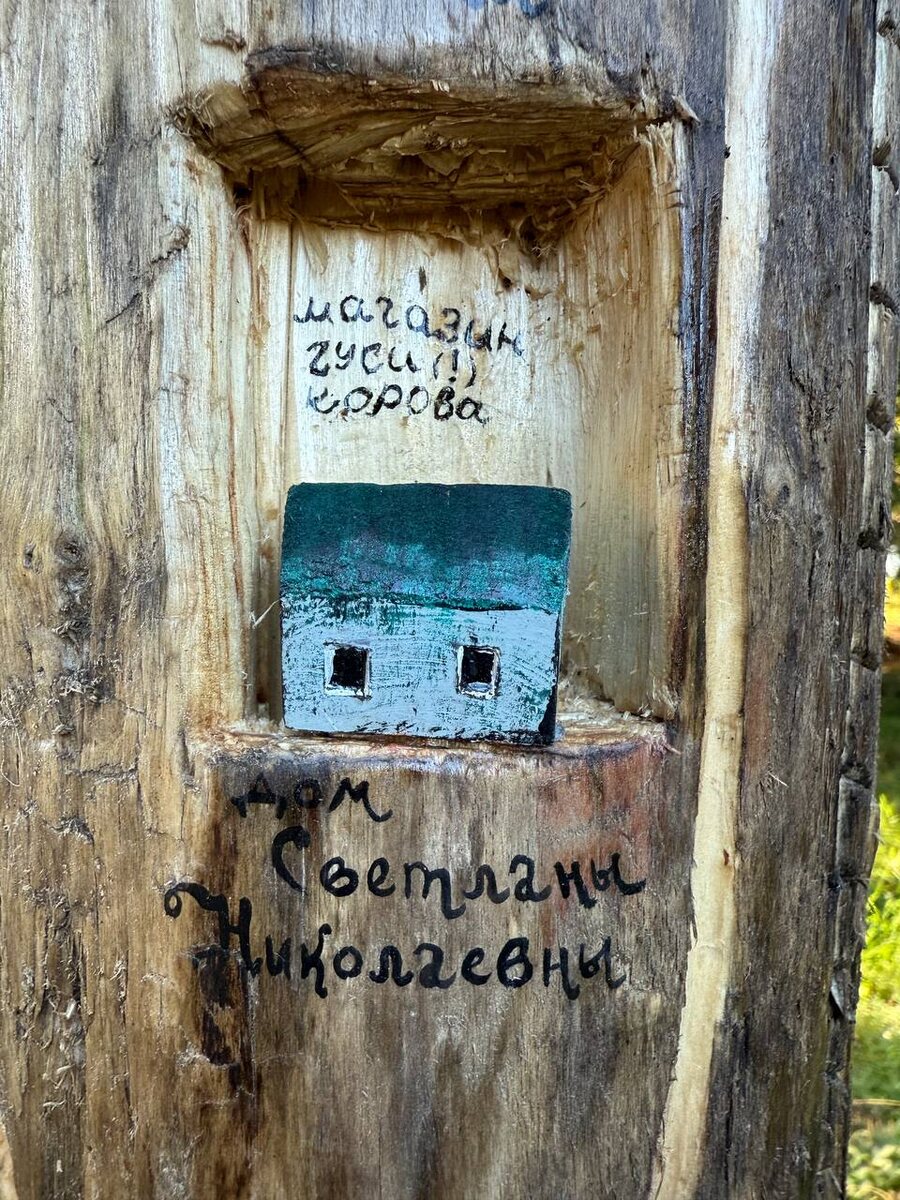 магазин
гуси(!)
корова
дом
Светланы
Николаевны